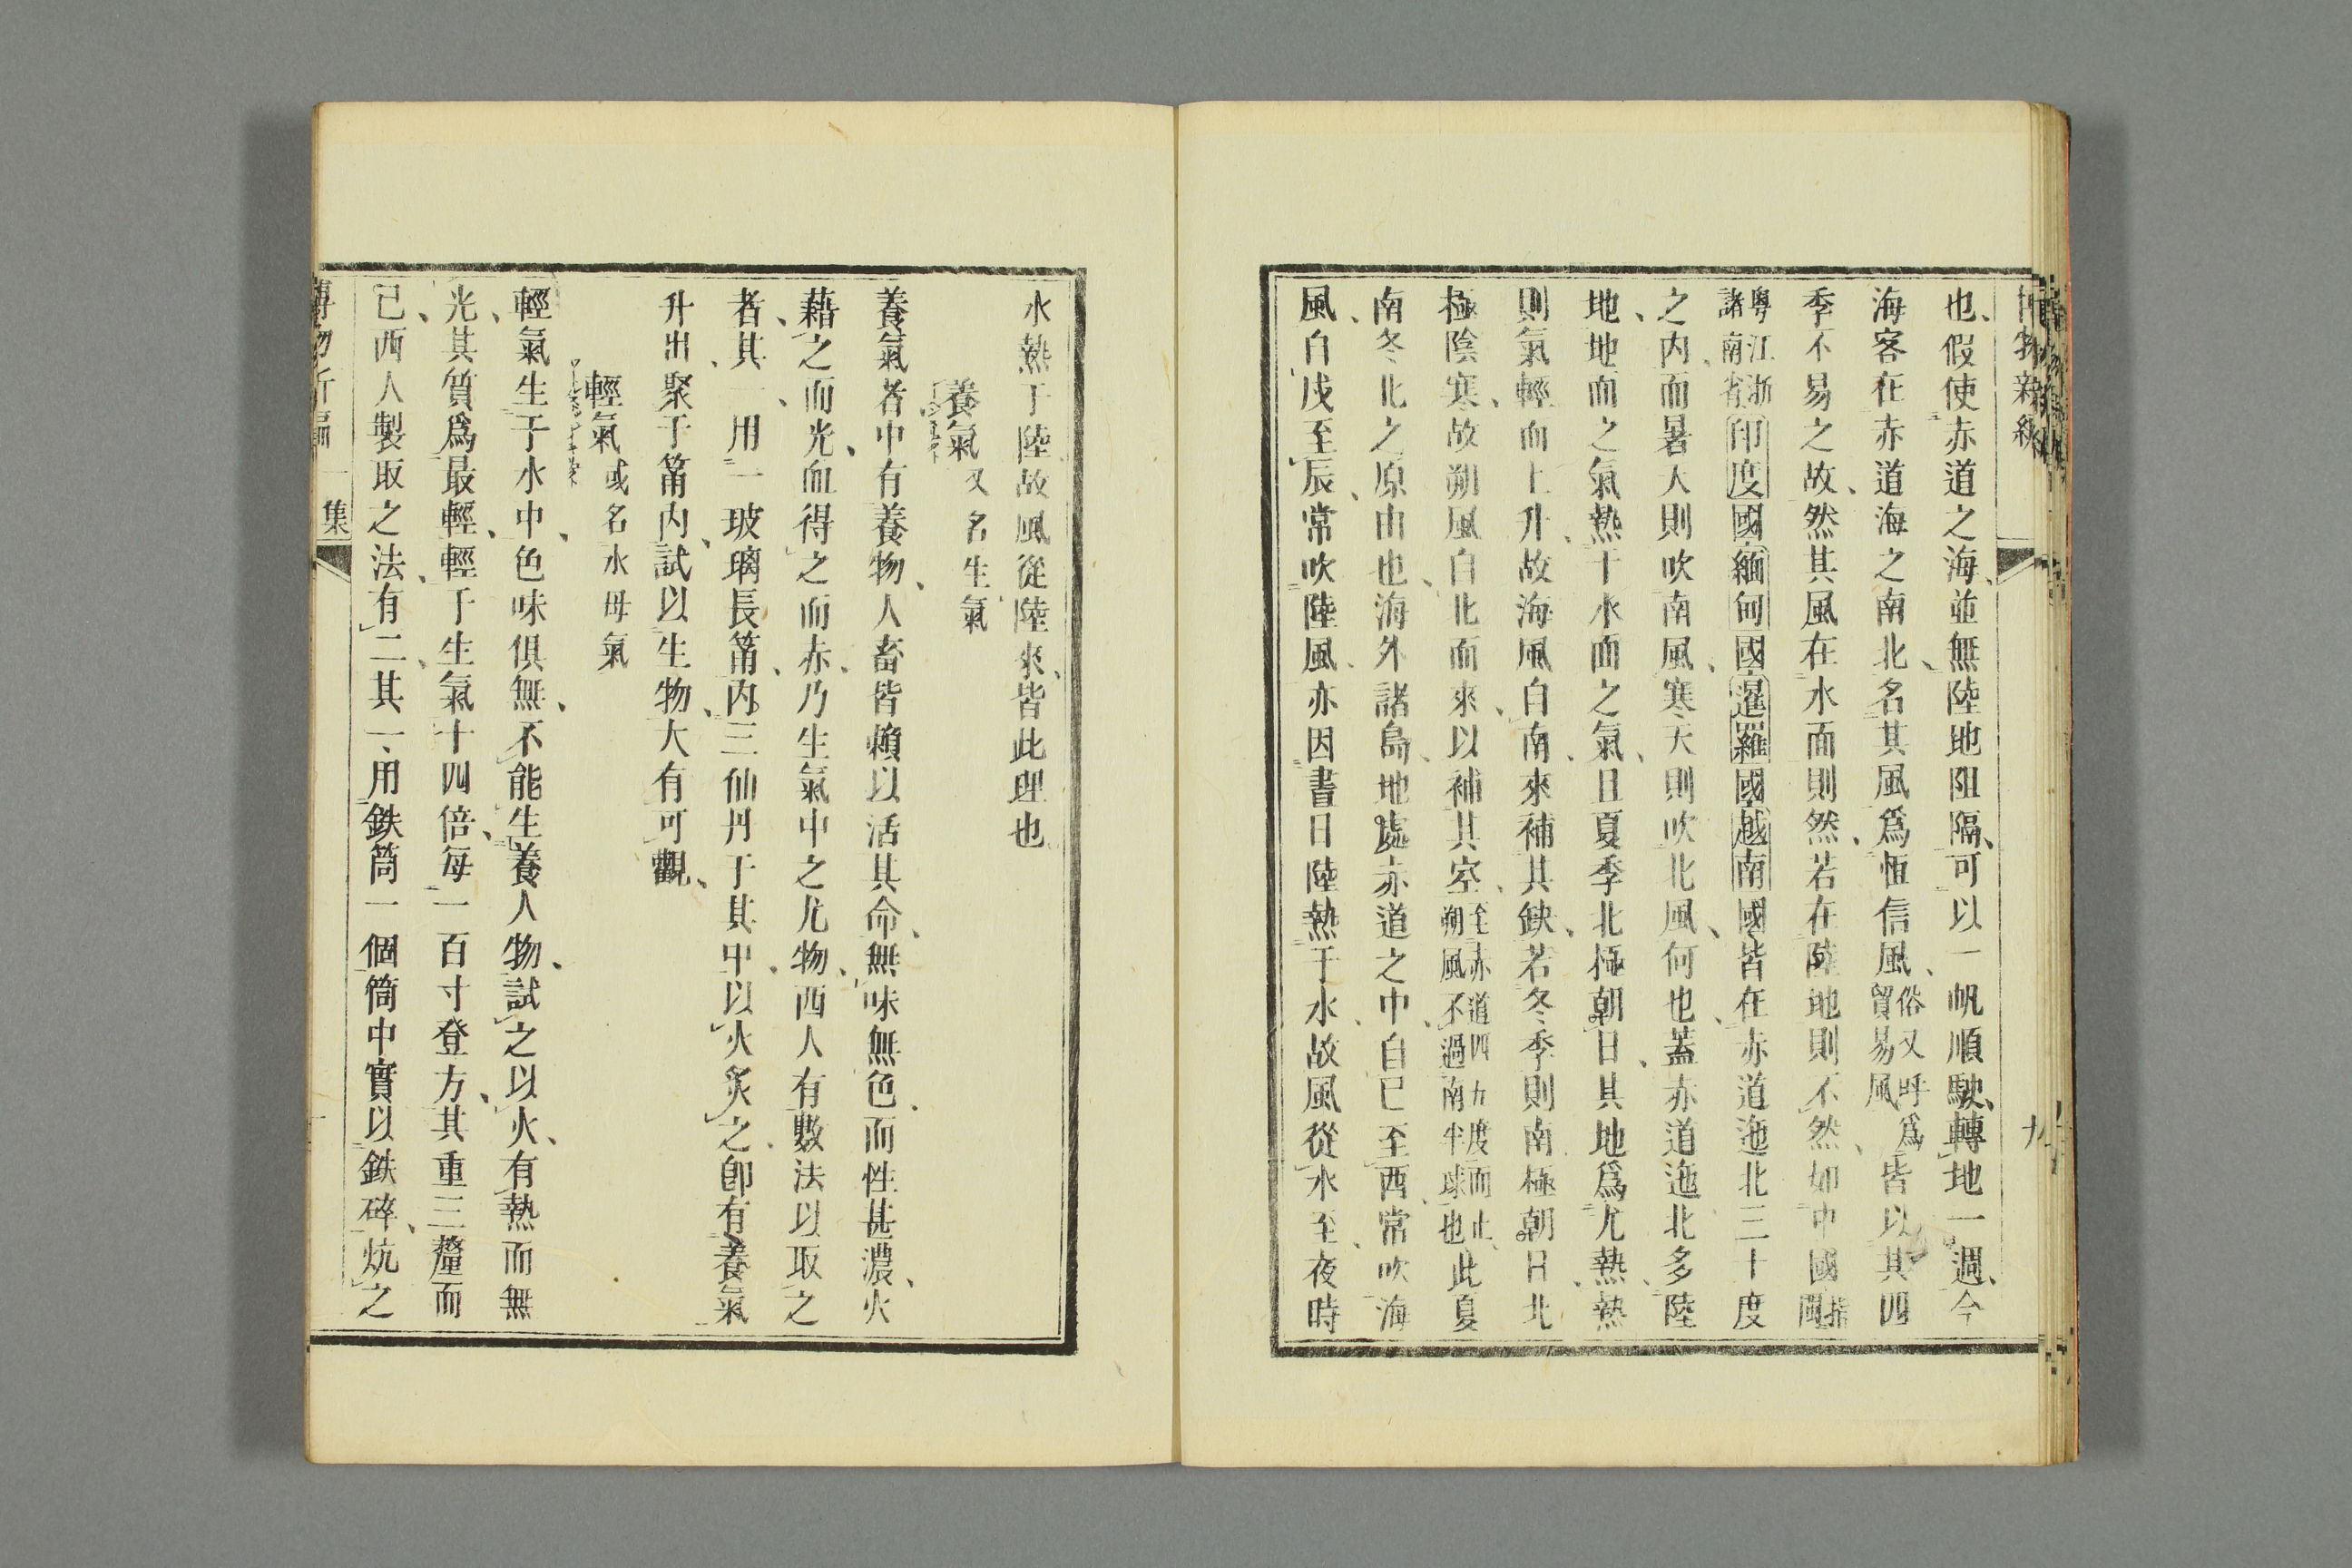 博物新編
九
也、假使赤道之海、並無陸地阻隔、可以一帆順駛、轉地一週、今
海客在赤道海之南北、名其風爲恒信風、俗又呼爲貿易風皆以其四
季不易之故、然其風在水面則然、若在陸地則不然、如中國指閩
粤江浙諸南省印度國緬甸國暹羅國越南國皆在赤道迤北三十度
之内、而暑天則吹南風、寒天則吹北風、何也、蓋赤道迤北多陸
地、地面之氣熱于水面之氣、且夏季北極朝日、其地爲尤熱、熱
則氣輕而上升、故海風自南來補其缺、若冬季則南極朝日、北
極陰寒、故朔風自北而來、以補其空、至赤道四五度而止、朔風不過南半球也此夏
南冬北之原由也、海外諸島、地處赤道之中、自巳至酉、常吹海
風、自戌至辰、常吹陸風、亦因晝日陸熱于水、故風從水至、夜時
水熱于陸、故風從陸來、皆此理也
養氣又名生氣
養氣者中有養物、人畜皆賴以活其命、無味無色、而性甚濃、火
藉之而光、血得之而赤、乃生氣中之尤物、西人有數法以取之
者、其一、用一玻璃長筩、内三仙丹于其中、以火炙之、卽有養氣
升出、聚于筩内、試以生物、大有可觀、
輕氣或名水母氣
輕氣生于水中、色味俱無、不能生養人物、試之以火、有熱而無
光、其質爲最輕、輕于生氣十四倍、每一百寸登方、其重三釐而
已、西人製取之法、有二、其一、用鉄筒一個、筒中實以鉄碎、炕之
博物新編
一集